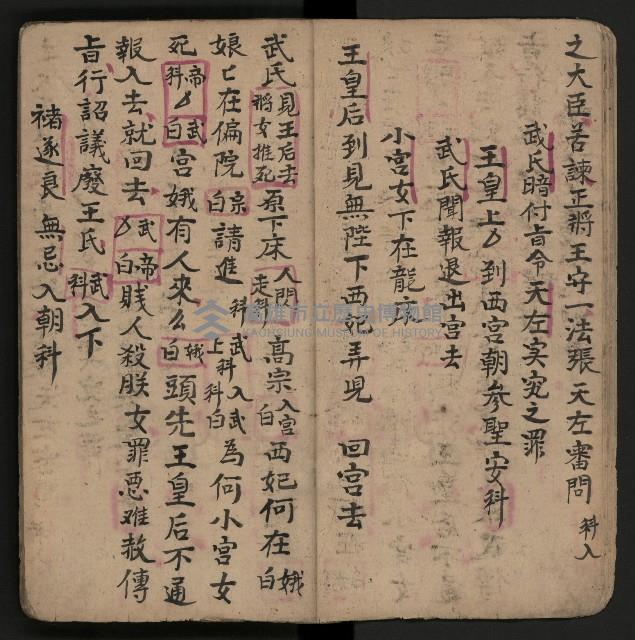 之大臣苦諫正將王守一法張天左審問 科入
武氏暗付旨令天左実究之罪
王皇上 到西宮朝參聖安科
武氏聞報退出宮去
小宮女下在龍床
王皇后到見無陛下西妃弄児 回宮去
武氏見王后去將女推死原下床人閃走科 高宗入宮白西妃何在娥白
娘亡在偏院宗白請進科武科入武上科科白為何小宮女
死帝科 武白宮娥有人來么娥白頭先王皇后不通
報入去就回去 武帝白賤人殺朕女罪悪难赦傳
旨行詔議廢王氏武科入下
褚遂良無忌入朝科
高雄市立歷史博物館
KAOHSIUNG MUSEUM OF HISTORY